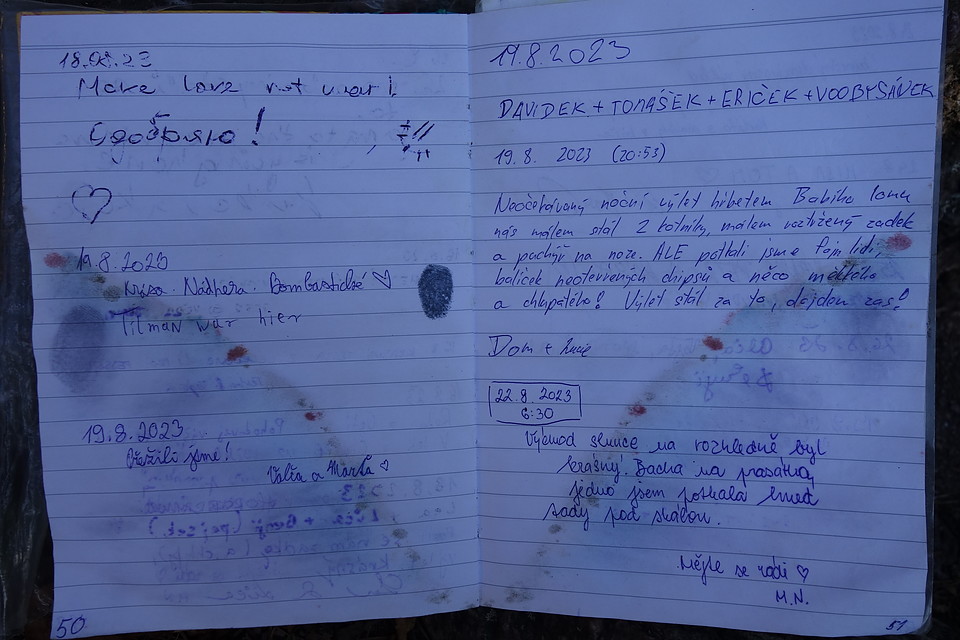 18.08.23
Make love not war!
Одобряю!
19.8.2023
Krása. Nádhera. Bombastické ♡
Tilman war hier
19.8.2023
Přežili jsme!
Vália a Marta ♡
50
19.8.2023
DAVIDEK + TOMÁŠEK + ERIČEK + VOOBYSÁVEK
19.8. 2023 (20:53)
Neočekávaný noční výlet hřbetem Babího lomu
nás málem stál 2 kotníky, málem roztržený zadek
a puchýř na noze. ALE potkali jsme fajn lidi,
balíček neotevřených chipsů a něco měkkého
a chlupatého! Výlet stál za to, dojdem zas!
Dom + Lucie
22.8. 2023
6:30
Východ slunce na rozhledně byl
krásný! Bacha na prasátka,
jedno jsem potkala hned
tady pod skalou.
Mějte se rádi ♡
M.N.
51